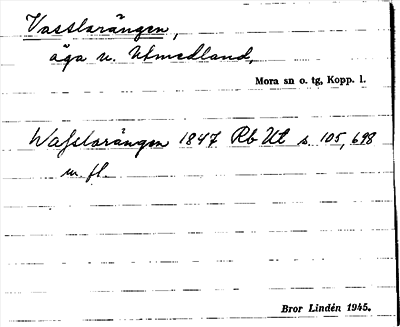 Vasslarängen,
äga n. Utmedland,
Mora sn o. tg, Kopp. l.
Wasslarängen 1847 Rb Ut s. 105, 698
m. fl.
Bror Lindén 1945.